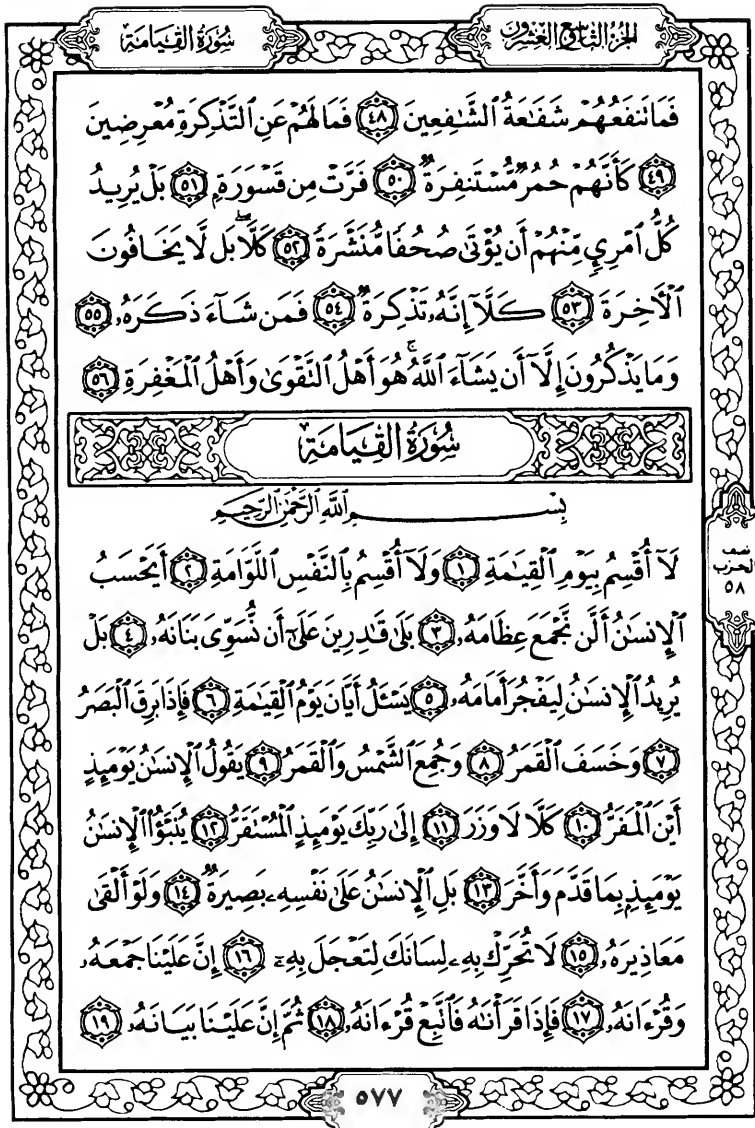 الجزء التاسع العشرون
سورة القيامة
فَمَا تَنفَعُهُمْ شَفَٰعَةُ ٱلشَّٰفِعِينَ ٤٨ فَمَا لَهُمْ عَنِ ٱلتَّذْكِرَةِ مُعْرِضِينَ
٤٩ كَأَنَّهُمْ حُمُرٌ مُّسْتَنفِرَةٌ ٥٠ فَرَّتْ مِن قَسْوَرَةٍ ٥١ بَلْ يُرِيدُ
كُلُّ ٱمْرِئٍ مِّنْهُمْ أَن يُؤْتَىٰ صُحُفًا مُّنَشَّرَةً ٥٢ كَلَّا ۖ بَل لَّا يَخَافُونَ
ٱلْءَاخِرَةَ ٥٣ كَلَّآ إِنَّهُۥ تَذْكِرَةٌ ٥٤ فَمَن شَآءَ ذَكَرَهُۥ ٥٥
وَمَا يَذْكُرُونَ إِلَّآ أَن يَشَآءَ ٱللَّهُ ۚ هُوَ أَهْلُ ٱلتَّقْوَىٰ وَأَهْلُ ٱلْمَغْفِرَةِ ٥٦
سُورَةُ القِيَامَةِ
بِسْمِ ٱللَّهِ ٱلرَّحْمَٰنِ ٱلرَّحِيمِ
لَآ أُقْسِمُ بِيَوْمِ ٱلْقِيَٰمَةِ ١ وَلَآ أُقْسِمُ بِٱلنَّفْسِ ٱللَّوَّامَةِ ٢ أَيَحْسَبُ
ٱلْإِنسَٰنُ أَلَّن نَّجْمَعَ عِظَامَهُۥ ٣ بَلَىٰ قَٰدِرِينَ عَلَىٰٓ أَن نُّسَوِّىَ بَنَانَهُۥ ٤ بَلْ
يُرِيدُ ٱلْإِنسَٰنُ لِيَفْجُرَ أَمَامَهُۥ ٥ يَسْـَٔلُ أَيَّانَ يَوْمُ ٱلْقِيَٰمَةِ ٦ فَإِذَا بَرِقَ ٱلْبَصَرُ
٧ وَخَسَفَ ٱلْقَمَرُ ٨ وَجُمِعَ ٱلشَّمْسُ وَٱلْقَمَرُ ٩ يَقُولُ ٱلْإِنسَٰنُ يَوْمَئِذٍ
أَيْنَ ٱلْمَفَرُّ ١٠ كَلَّا لَا وَزَرَ ١١ إِلَىٰ رَبِّكَ يَوْمَئِذٍ ٱلْمُسْتَقَرُّ ١٢ يُنَبَّؤُا۟ ٱلْإِنسَٰنُ
يَوْمَئِذٍۭ بِمَا قَدَّمَ وَأَخَّرَ ١٣ بَلِ ٱلْإِنسَٰنُ عَلَىٰ نَفْسِهِۦ بَصِيرَةٌ ١٤ وَلَوْ أَلْقَىٰ
مَعَاذِيرَهُۥ ١٥ لَا تُحَرِّكْ بِهِۦ لِسَانَكَ لِتَعْجَلَ بِهِۦٓ ١٦ إِنَّ عَلَيْنَا جَمْعَهُۥ
وَقُرْءَانَهُۥ ١٧ فَإِذَا قَرَأْنَٰهُ فَٱتَّبِعْ قُرْءَانَهُۥ ١٨ ثُمَّ إِنَّ عَلَيْنَا بَيَانَهُۥ ١٩
نصف
الحزب
٥٨
٥٧٧